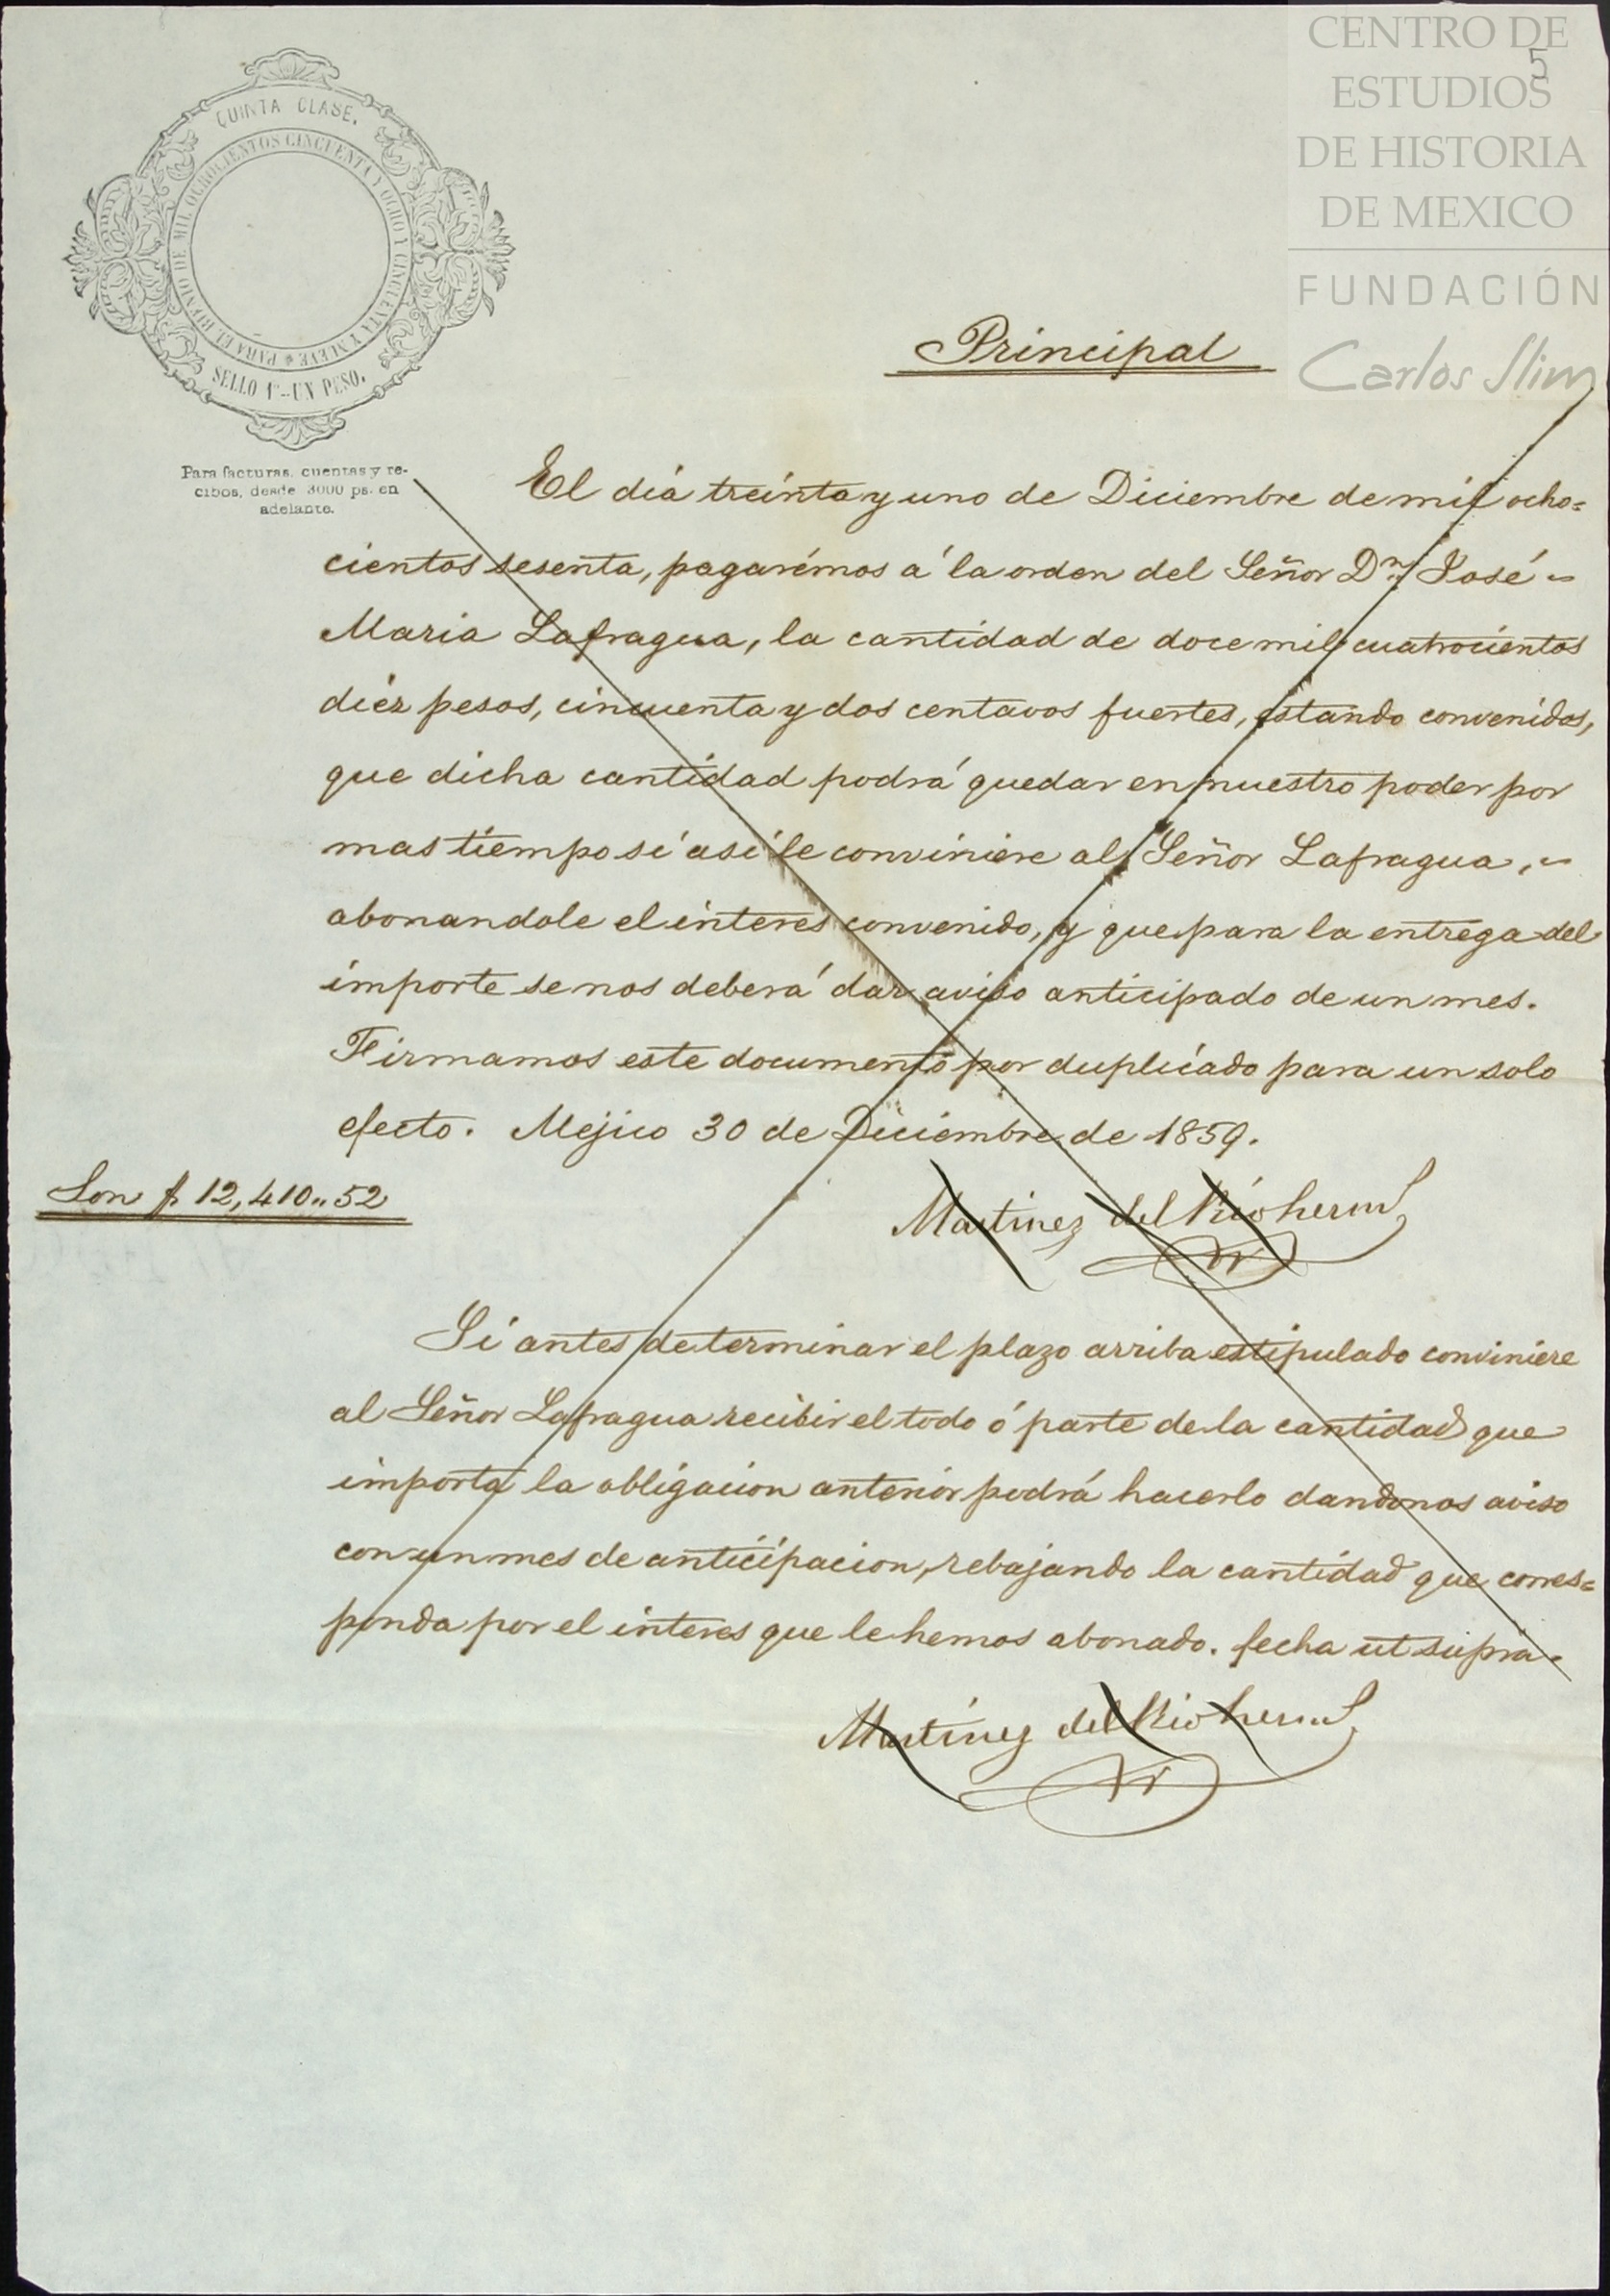 CENTRO DE
ESTUDIOS
DE HISTORIA
DE MEXICO
FUNDACIÓN
Carlos Slim
5
QUINTA CLASE.
PARA EL BIENIO DE MIL OCHOCIENTOS CINCUENTA Y OCHO Y CINCUENTA Y NUEVE
SELLO 1º--UN PESO.
Para facturas, cuentas y re-
cibos, desde 3000 ps. en
adelante.
Principal
El diá treinta y uno de Diciembre de mil ocho=
cientos sesenta, pagarémos á la orden del Señor Dn. José
Maria Lafragua, la cantidad de doce mil cuatrocientos
diéz pesos, cincuenta y dos centavos fuertes, estando convenidos,
que dicha cantidad podrá quedar en nuestro poder por
mas tiempo si asi le conviniere al Señor Lafragua,
abonandole el interes convenido, y que para la entrega del
importe se nos deberá dar aviso anticipado de un mes.
Firmamos este documento por duplicado para un solo
efecto. Mejico 30 de Diciembre de 1859.
Son $ 12,410,,52
Martinez del Rio hermS
Si antes de terminar el plazo arriba estipulado conviniere
al Señor Lafragua recibir el todo ó parte de la cantidad que
importa la obligacion anterior podrá hacerlo dandonos aviso
con un mes de anticipacion, rebajando la cantidad que corres=
ponda por el interes que le hemos abonado. fecha ut supra.
Martinez del Rio hermS